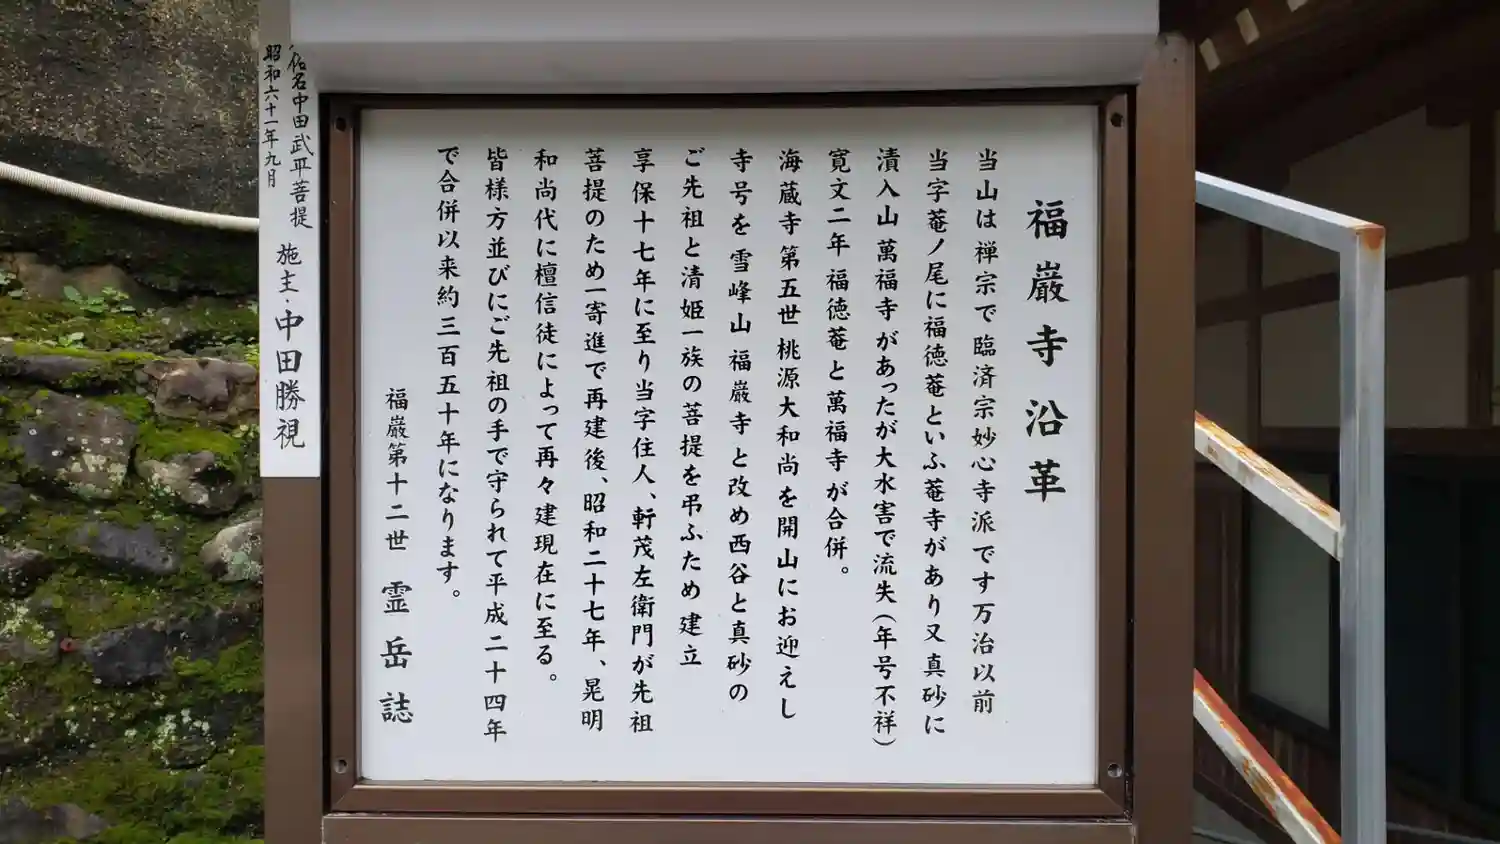 福巌寺沿革
当山は禅宗で臨済宗妙心寺派です万治以前
当字菴ノ尾に福徳菴といふ菴寺があり又真砂に
漬入山萬福寺があったが大水害で流失(年号不祥)
寛文二年福徳菴と萬福寺が合併。
海蔵寺第五世桃源大和尚を開山にお迎えし
寺号を雪峰山福巌寺と改め西谷と真砂の
ご先祖と清姫一族の菩提を弔ふため建立
享保十七年に至り当字住人、軒茂左衛門が先祖
菩提のため一寄進で再建後、昭和二十七年、晃明
和尚代に檀信徒によって再々建現在に至る。
皆様方並びにご先祖の手で守られて平成二十四年
で合併以来約三百五十年になります。
福巌第十二世 霊岳誌
佑名中田武平菩提 施主・中田勝視
昭和六十一年九月